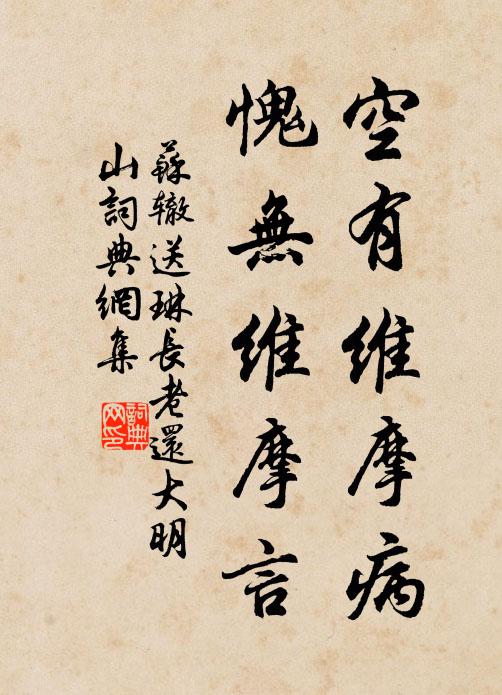 空有維摩病
愧無維摩言
蘇辙送琳長老還大明
山詞典網集
詞典
网印